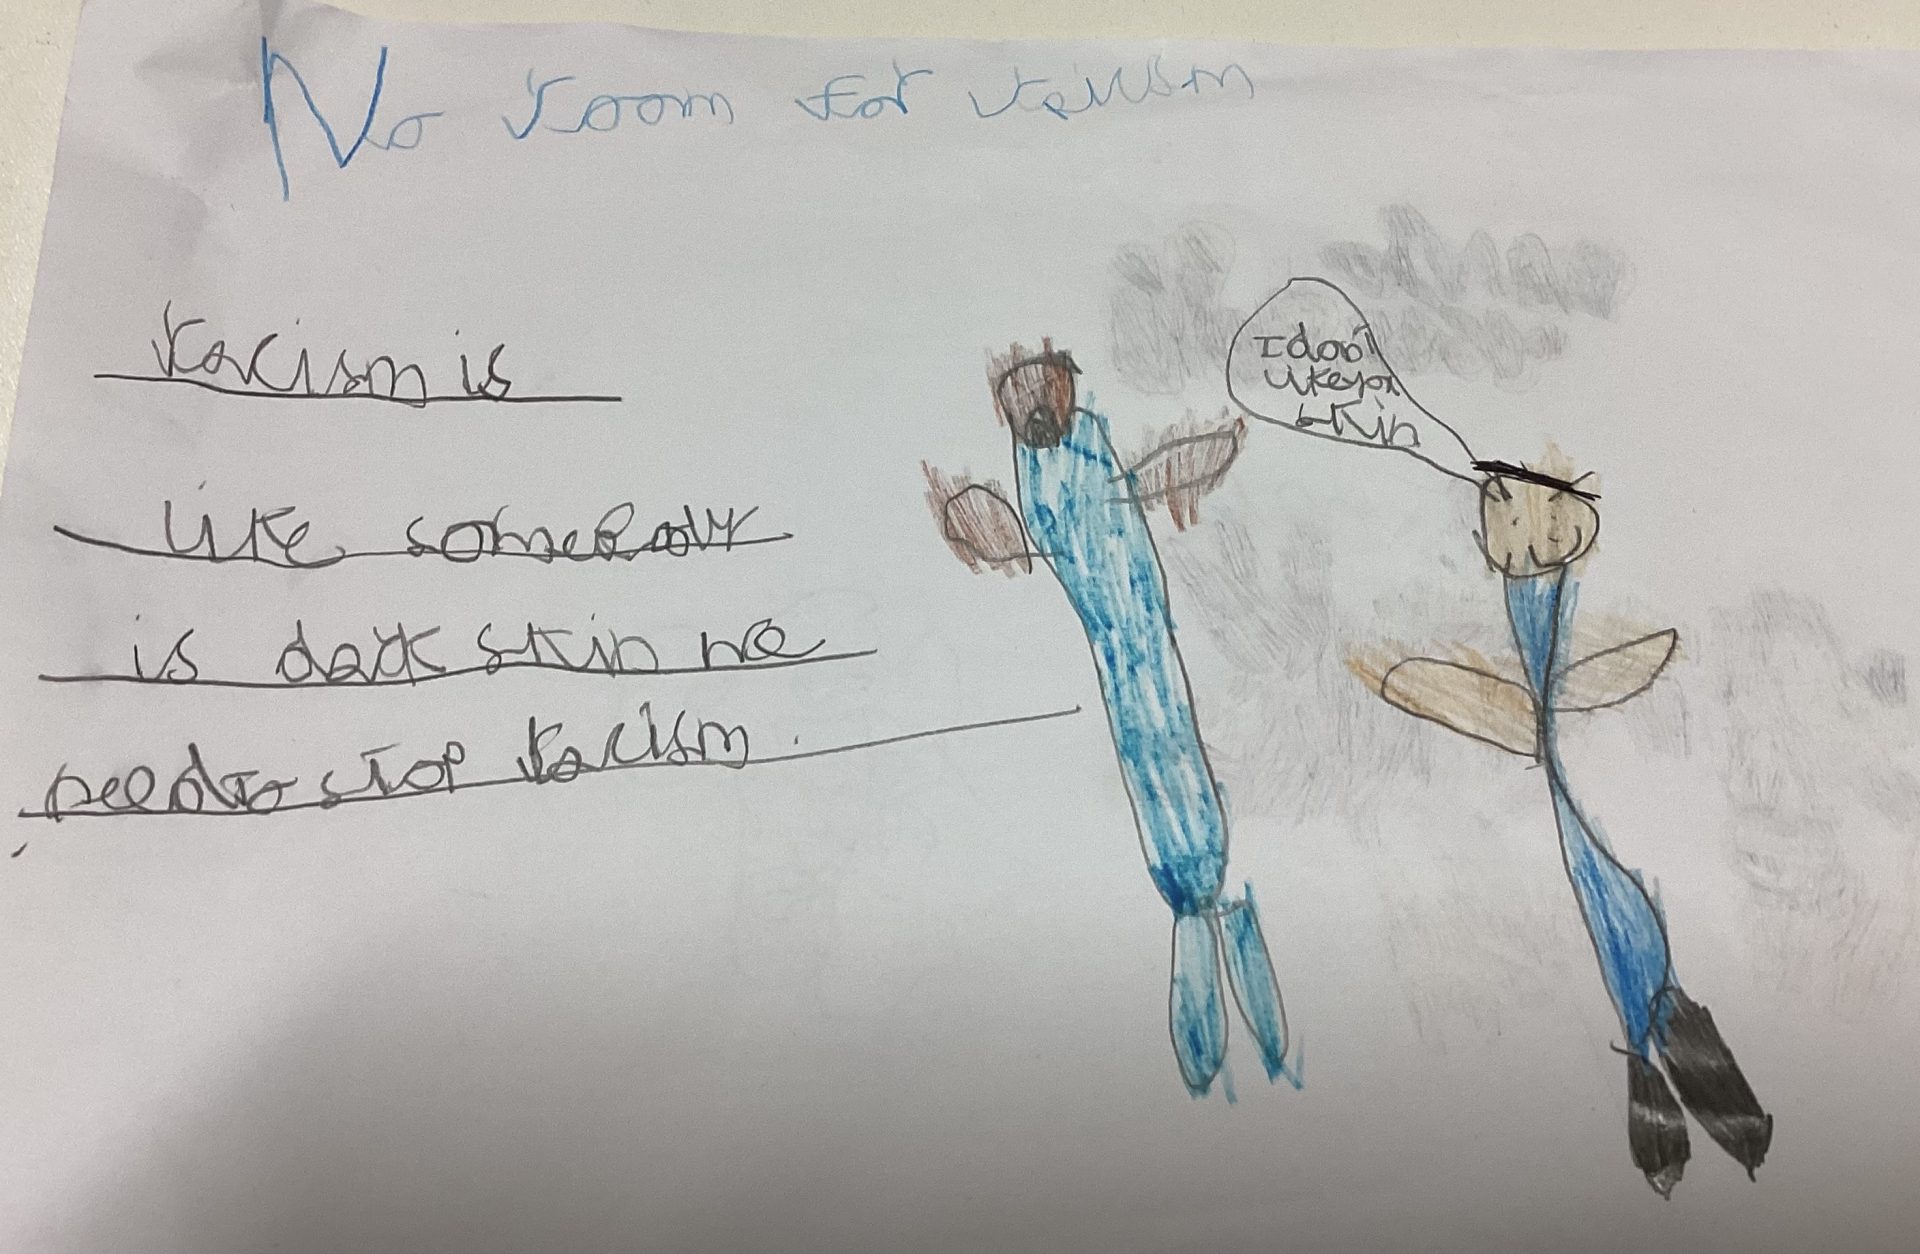 No room for racism
racism is
like somebody
is dark skin we
need to stop racism.
I don't
like your
skin